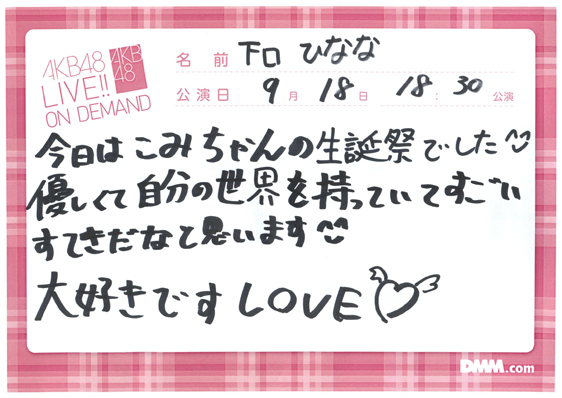 AKB48
LIVE!!
ON DEMAND
AKB
48
名前 下口 ひなな
公演日 9月18日 18:30公演
今日はこみちゃんの生誕祭でした^^
優しくて自分の世界を持っていてすごい
すてきだなと思います^^
大好きですLOVE♡
DMM.com